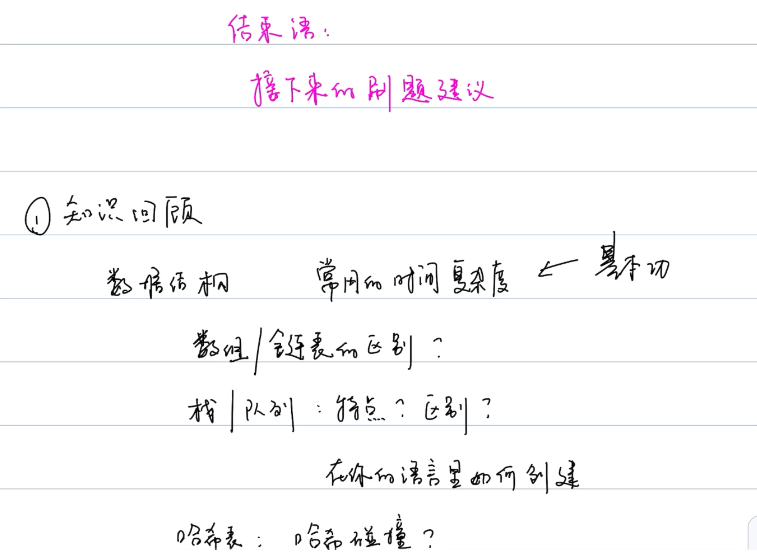 结束语：
接下来的刷题建议
① 知识回顾
数据结构 常用的时间复杂度 ← 基本功
数组/链表的区别？
栈/队列：特点？区别？
在你的语言里如何创建
哈希表：哈希碰撞？